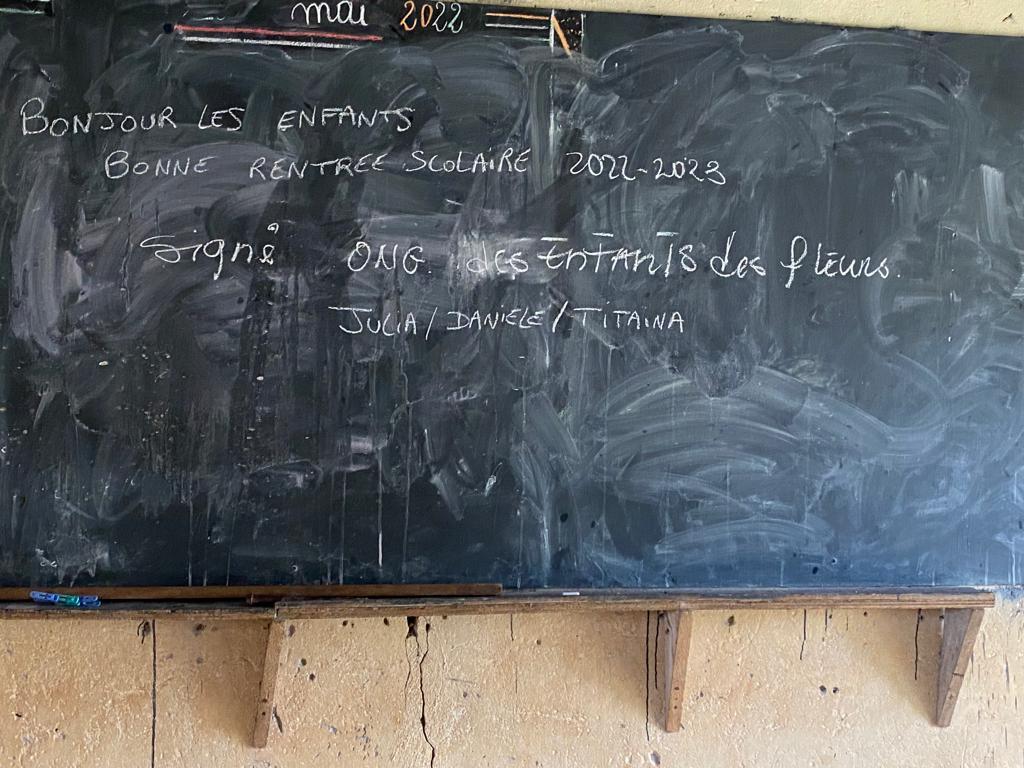 mai 2022
BONJOUR LES ENFANTS
BONNE RENTREE SCOLAIRE 2022-2023
Signé ONG. des EnfAnts des fleurs.
JULIA/DANIELE/TITAINA